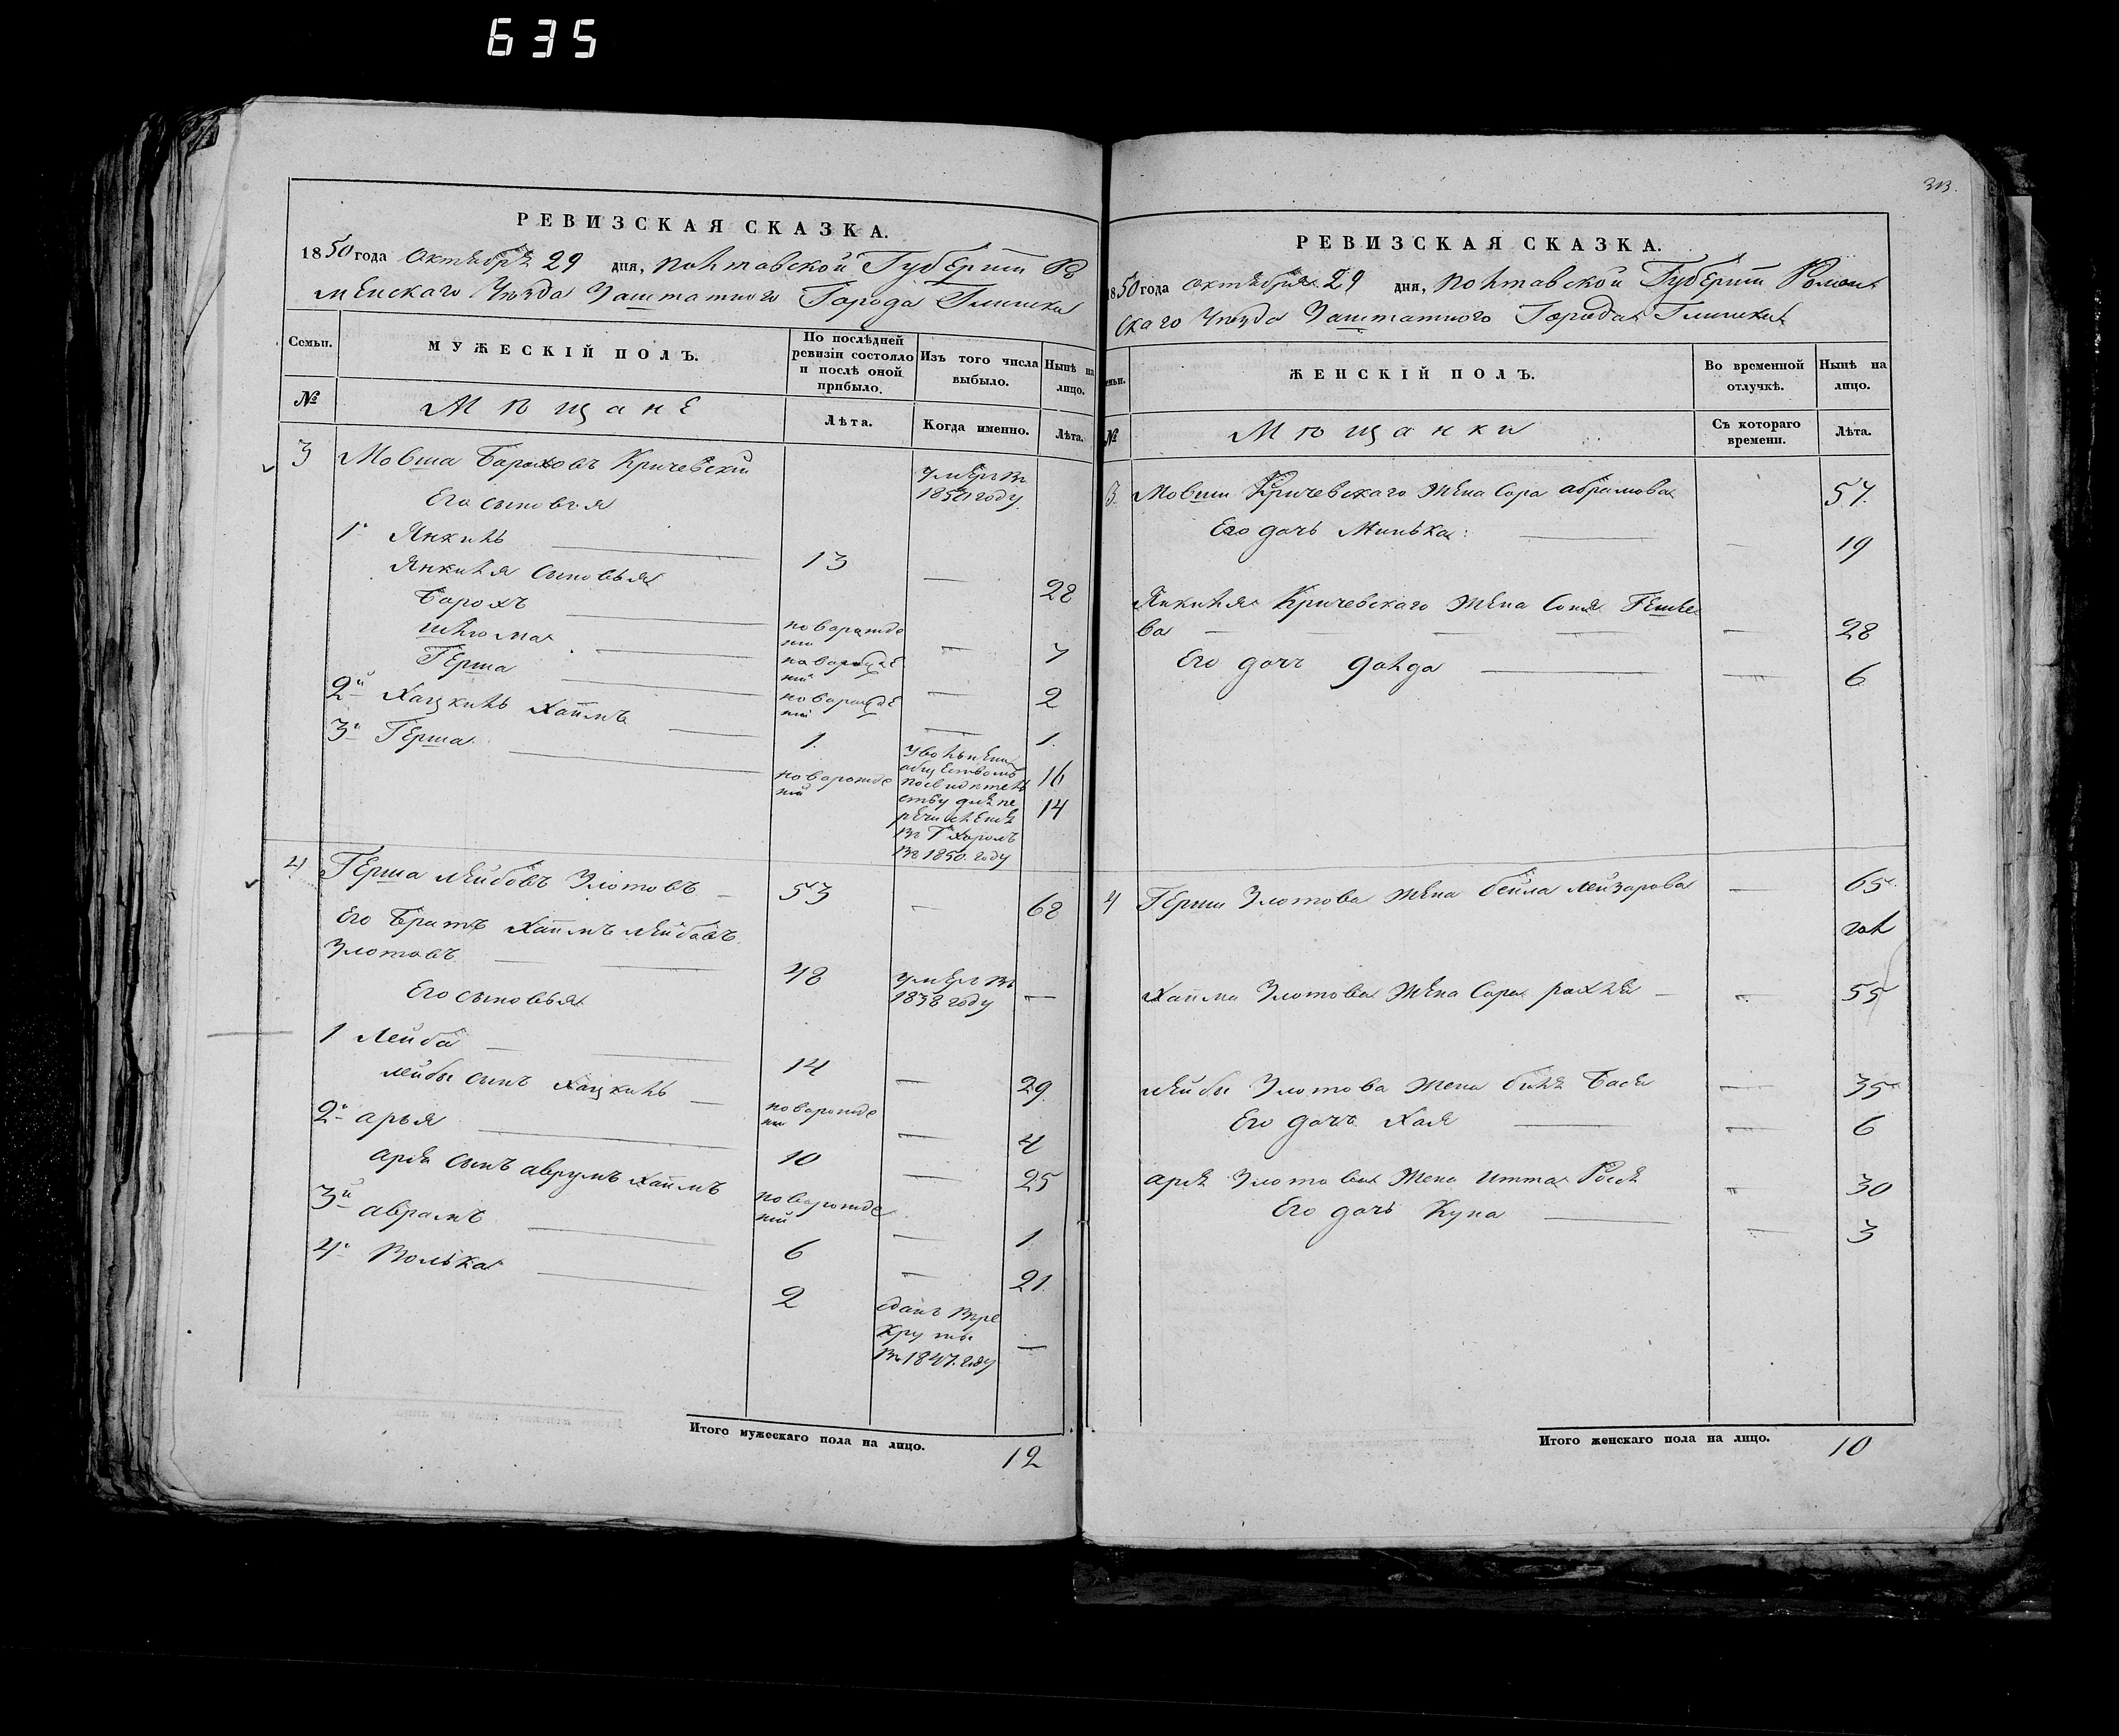 635
313.
РЕВИЗСКАЯ СКАЗКА.
1850 года Октября 29 дня, Полтавской Губерніи Ро
менскаго Уѣзда Заштатного Города Глинска
Семьи. МУЖЕСКІЙ ПОЛЪ. По послѣдней ревизіи состояло и послѣ оной прибыло. Изъ того числа выбыло. Нынѣ на лицо.
№ Мѣщане Лѣта. Когда именно. Лѣта.
3 Мовша Бароховъ Кричевскій умеръ въ 1850 году.
Его сыновья
1й Янкиль 13 — 28
Янкиля сыновья
Барохъ новорожде ній — 7
Шлюма новорожде ній — 2
Герша новорожде ній — 1.
2й Хацкиль Хаимъ 1. 16
3й Герша новорожде ній 14
увольненъ
обществомъ
по свидѣтель
ству для пе
речисленія
въ Г Хоролъ
въ 1850. году
4 Герша Лейбовъ Злотовъ 53 — 68
Его Братъ Хаимъ Лейбовъ
Злотовъ 48 умеръ въ 1838 году —
Его сыновья
1 Лейба 14 — 29.
Лейбы сынъ Хацкиль новорожде ній — 4
2й Арья 10 — 25
Аря сынъ Аврумъ Хаимъ новорожде ній — 1
3й Аврамъ 6 — 21.
4й Волька 2 сданъ въ ре круты въ 1847. году —
Итого мужескаго пола на лицо. 12
РЕВИЗСКАЯ СКАЗКА.
1850 года Октября 29 дня, Полтавской Губерніи Ромен
скаго Уѣзда Заштатного Города Глинска
Семьи. ЖЕНСКІЙ ПОЛЪ. Во временной отлучкѣ. Нынѣ на лицо.
№ Мѣщанки Съ котораго времени. Лѣта.
3. Мовши Кричевскаго жена Сора Абрамова 57.
Его дочь Минька: — 19
Янкиля Кричевскаго жена Соня Гешле
ва — 28
Его дочь — 6
4 Герши Злотова жена Бейла Лейзарова — 65
Хаима Злотова жена Сора Рохля 55
Лейбы Злотова жена Бася — 35
Его дочь Хая — 6
Аря Злотова жена Итта Рося 30
Его дочь Куна — 3
Итого женскаго пола на лицо. 10